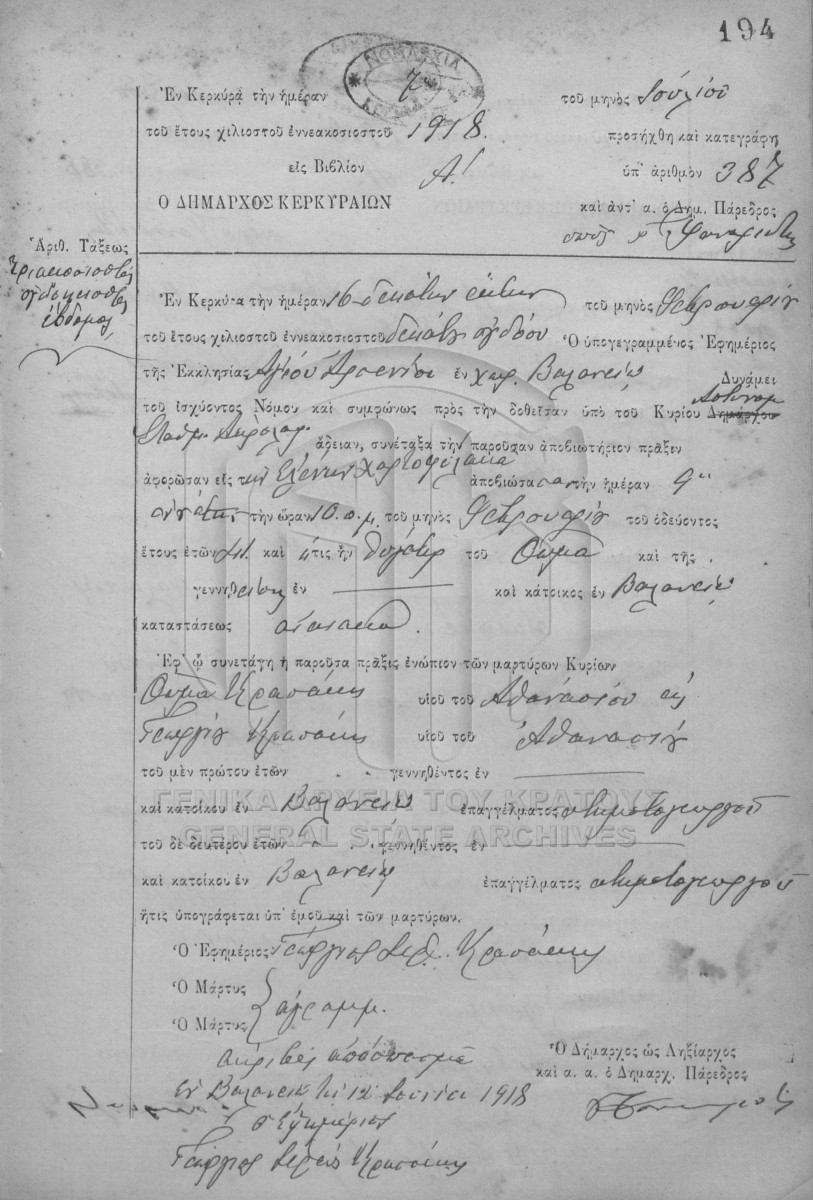 194
ΝΟΜΑΡΧΙΑ
Ἐν Κερκύρᾳ τὴν ἡμέραν 7 τοῦ μηνὸς Ἰουλίου
τοῦ ἔτους χιλιοστοῦ ἐννεακοσιοστοῦ 1918. προσήχθη καὶ κατεγράφη
εἰς Βιβλίον Α! ὑπ' ἀριθμὸν 387
Ο ΔΗΜΑΡΧΟΣ ΚΕΡΚΥΡΑΙΩΝ καὶ ἀντ' α. ὁ Δημ. Πάρεδρος
Ἀριθ. Τάξεως
τριακοσιοστὸς
ογδοηκοστὸς
έβδομος
Ἐν Κερκύρα τὴν ἡμέραν 16 δεκάτην έκτην τοῦ μηνὸς Φεβρουαρίου
τοῦ ἔτους χιλιοστοῦ ἐννεακοσιοστοῦ δεκάτου ογδόου Ὁ ὑπογεγραμμένος Ἐφημέριος
τῆς Ἐκκλησίας Αγίου Αρσενίου ἐν χωρ. Βαλανειῷ Δυνάμει
τοῦ ἰσχύοντος Νόμου καὶ συμφώνως πρὸς τὴν δοθεῖσαν ὑπὸ τοῦ Κυρίου Δημάρχου Αστυνομ
Σταθμ. ἄδειαν, συνέταξα τὴν παροῦσαν ἀποβιωτήριον πρᾶξιν
ἀφορῶσαν εἰς την Ελένην Χαρτοφύλακα ἀποβιώσασαν τὴν ἡμέραν 9
ἐννάτην τὴν ὥραν 10 π.μ. τοῦ μηνὸς Φεβρουαρίου τοῦ ὁδεύοντος
ἔτους ἐτῶν καὶ ήτις ἦν θυγάτηρ τοῦ Θωμᾶ καὶ τῆς
γεννηθείσης ἐν καὶ κάτοικος ἐν Βαλανειῷ
καταστάσεως
Ἐφ' ᾧ συνετάγη ἡ παροῦσα πρᾶξις ἐνώπιον τῶν μαρτύρων Κυρίων
Θωμᾶ Κρασάκη υἱοῦ τοῦ Αθανασίου και
Γεωργίου Κρασάκη υἱοῦ τοῦ Αθανασίου
τοῦ μὲν πρώτου ἐτῶν γεννηθέντος ἐν
καὶ κατοίκου ἐν Βαλανειῷ ἐπαγγέλματος κτηματογεωργοῦ
ΓΕΝΙΚΑ ΑΡΧΕΙΑ ΤΟΥ ΚΡΑΤΟΥΣ
GENERAL STATE ARCHIVES
τοῦ δὲ δευτέρου ἐτῶν γεννηθέντος ἐν
καὶ κατοίκου ἐν Βαλανειῷ ἐπαγγέλματος κτηματογεωργοῦ
ἥτις ὑπογράφεται ὑπ' ἐμοῦ καὶ τῶν μαρτύρων.
Ὁ Ἐφημέριος Γεώργιος Ιερ. Κρασάκης
Ὁ Μάρτυς
Ὁ Μάρτυς αγραμμ.
ακριβὲς απόσπασμα
Ὁ Δήμαρχος ὡς Ληξίαρχος
καὶ α. α. ὁ Δημαρχ. Πάρεδρος
Εν Βαλανειῷ τῇ 12 Ιουνίου 1918
ο εφημέριος
Γεώργιος Ιερεὺς Κρασάκης